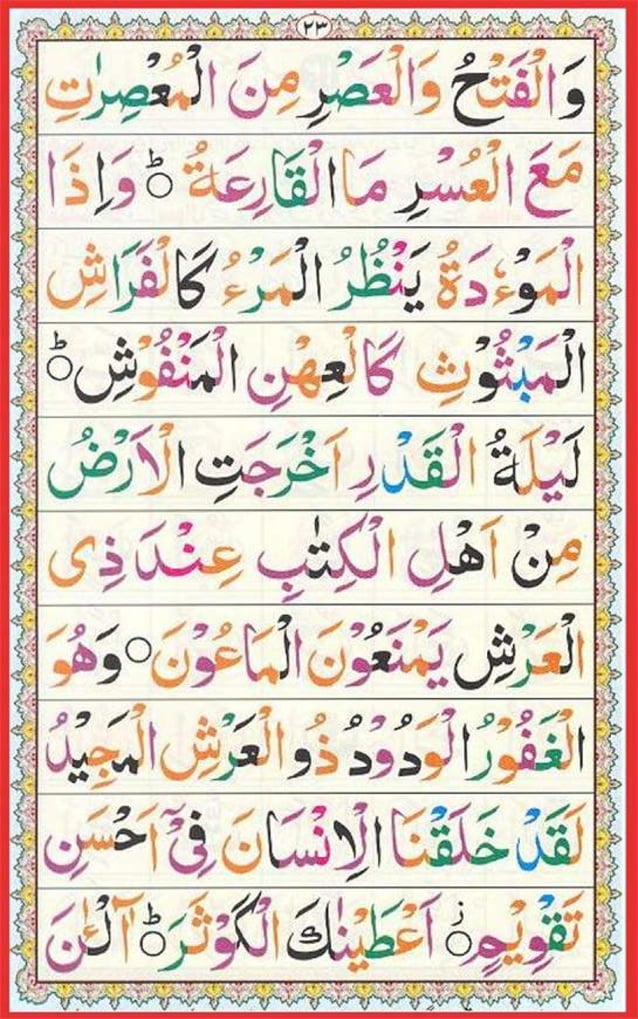 ٢٣
وَالْفَتْحُ وَالْعَصْرِ مِنَ الْمُعْصِرٰتِ
مَعَ الْعُسْرِ مَا الْقَارِعَةُ ۝ؕ وَاِذَا
الْمَوْءٗدَةُ يَنْظُرُ الْمَرْءُ كَالْفَرَاشِ
الْمَبْثُوْثِ كَالْعِهْنِ الْمَنْفُوْشِ ۝ؕ
لَيْلَةُ الْقَدْرِ اَخْرَجَتِ الْاَرْضُ
مِنْ اَهْلِ الْكِتٰبِ عِنْدَ ذِى
الْعَرْشِ يَمْنَعُوْنَ الْمَاعُوْنَ ۝ وَهُوَ
الْغَفُوْرُ الْوَدُوْدُ ذُو الْعَرْشِ الْمَجِيْدُ
لَقَدْ خَلَقْنَا الْاِنْسَانَ فِىْٓ اَحْسَنِ
تَقْوِيْمٍ ۝ز اَعْطَيْنٰكَ الْكَوْثَرَ ۝ؕ آٰلْـٰٔنَ